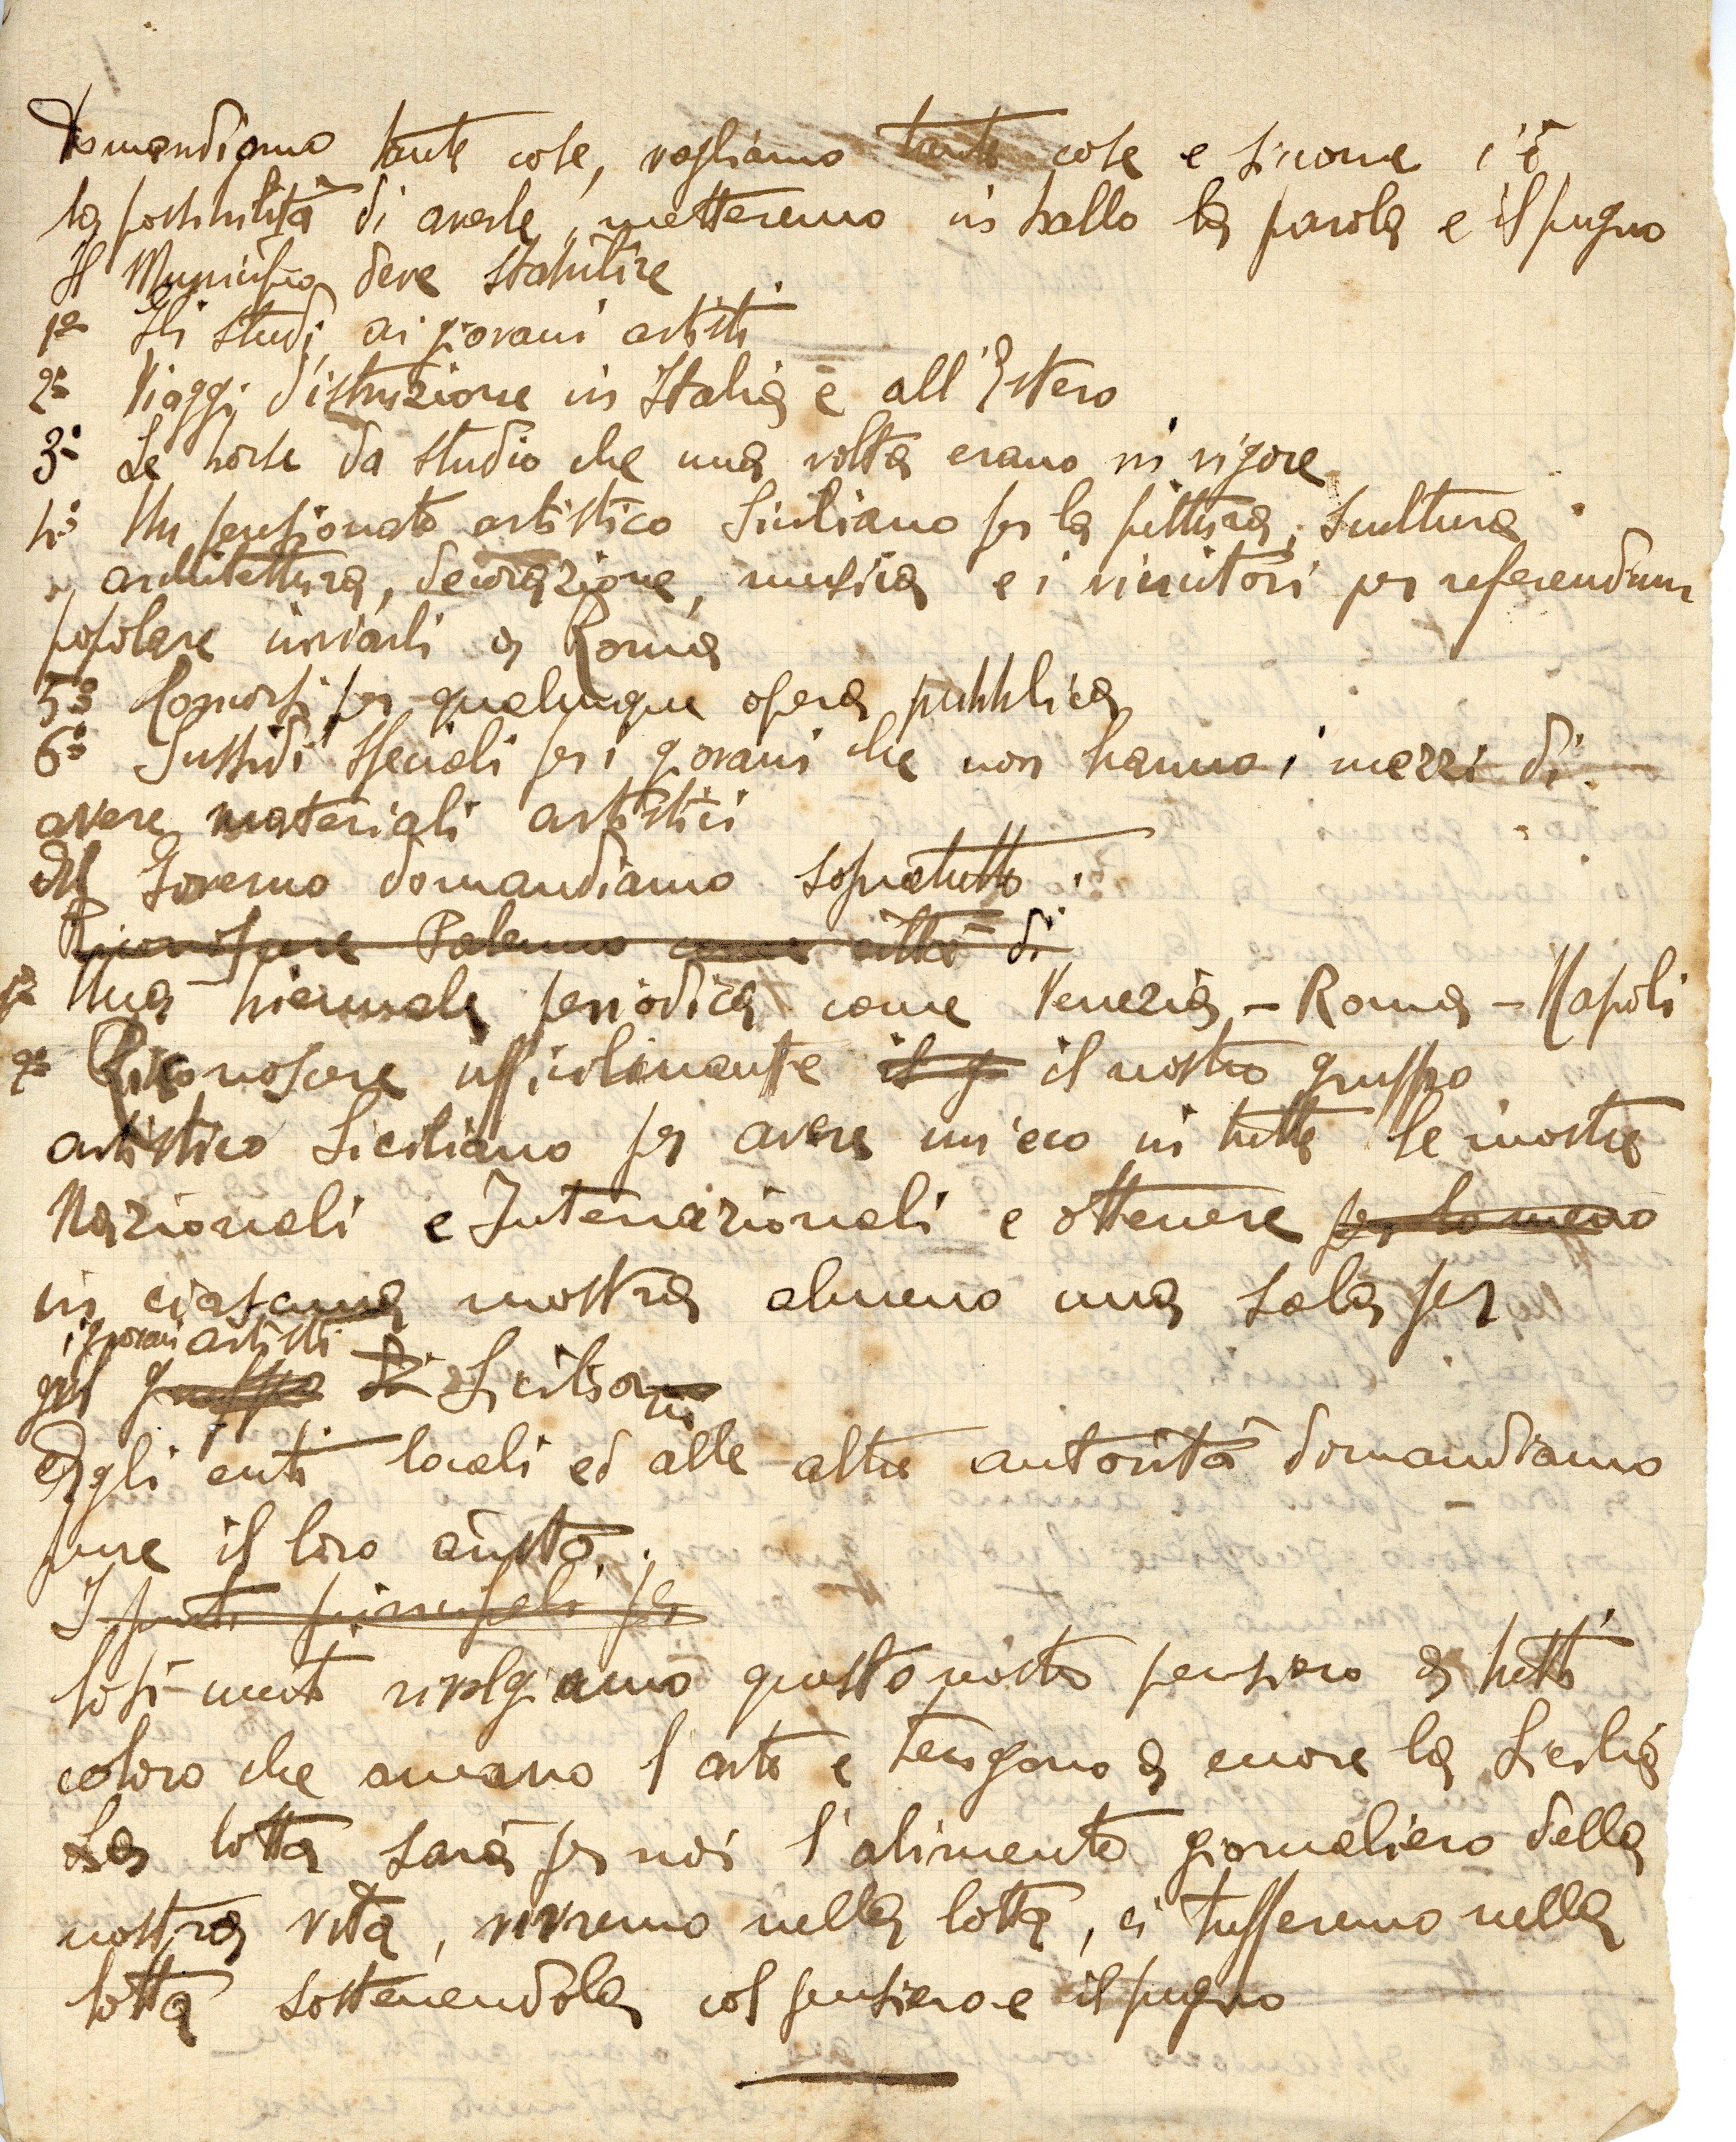 Domandiamo tante cose, vogliamo tante cose e siccome c'è
la possibilità di averle, metteremo in ballo la parola e il pugno
Il Municipio deve stabilire
1º Gli studi ai giovani artisti
2º Viaggi d'istruzione in Italia e all'Estero
3º Le borse da studio che una volta erano in vigore
4º Un pensionato artistico Siciliano per la pittura, scultura
architettura, decorazione, musica e i vincitori per referendum
popolare inviarli a Roma
5º Concorsi per qualunque opera pubblica
6º Sussidi speciali per i giovani che non hanno i mezzi di
avere materiali artistici
Al Governo domandiamo sopratutto:
Riconoscere Palermo come città di
1º Una biennale periodica come Venezia - Roma - Napoli
2º Riconoscere ufficialmente il g il nostro gruppo
artistico Siciliano per avere un'eco in tutte le mostre
Nazionali e Internazionali e ottenere per lo meno
in ciascuna mostra almeno una sala per
i giovani artisti
gruppo di Siciliani
Agli enti locali ed alle altre autorità domandiamo
pure il loro aiuto.
I punti principali per
Così-mente rivolgiamo questo nostro pensiero a tutti
coloro che amano l'arte e tengono a cuore la Sicilia
La lotta sarà per noi l'alimento giornaliero della
nostra vita, vivremo nella lotta, ci tufferemo nella
lotta sostenendola col pensiero e il pugno